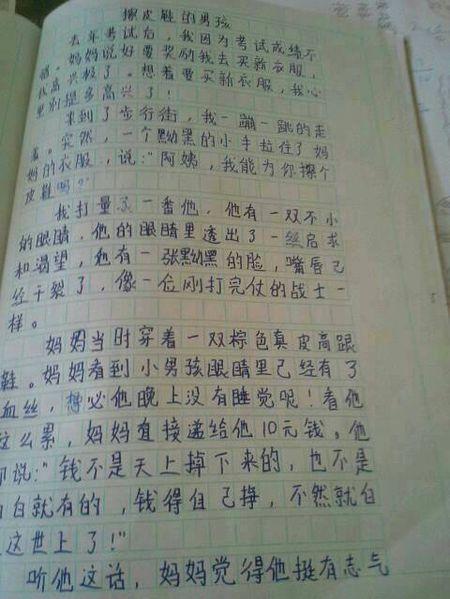 擦皮鞋的男孩
去年考试后，我因为考试成绩不
错。妈妈说好要奖励我去买新衣服，
我高兴极了。想着要买新衣服，我心
里别提多高兴了！
来到了步行街，我一蹦一跳的走
着。突然，一个黝黑的小手拉住了妈
妈的衣服，说：“阿姨，我能为你擦个
皮鞋吗？”
我打量了一番他，他有一双不小
的眼睛，他的眼睛里透出了一丝启求
和渴望，他有一张黝黑的脸，嘴唇已
经干裂了，像一位刚打完仗的战士一
样。
妈妈当时穿着一双棕色真皮高跟
鞋。妈妈看到小男孩眼睛里已经有了
血丝，想必他晚上没有睡觉呢！看他
这么累，妈妈直接递给他10元钱。他
却说：“钱不是天上掉下来的，也不是
白就有的，钱得自己挣，不然就白
这世上了！”
听他这话，妈妈觉得他挺有志气